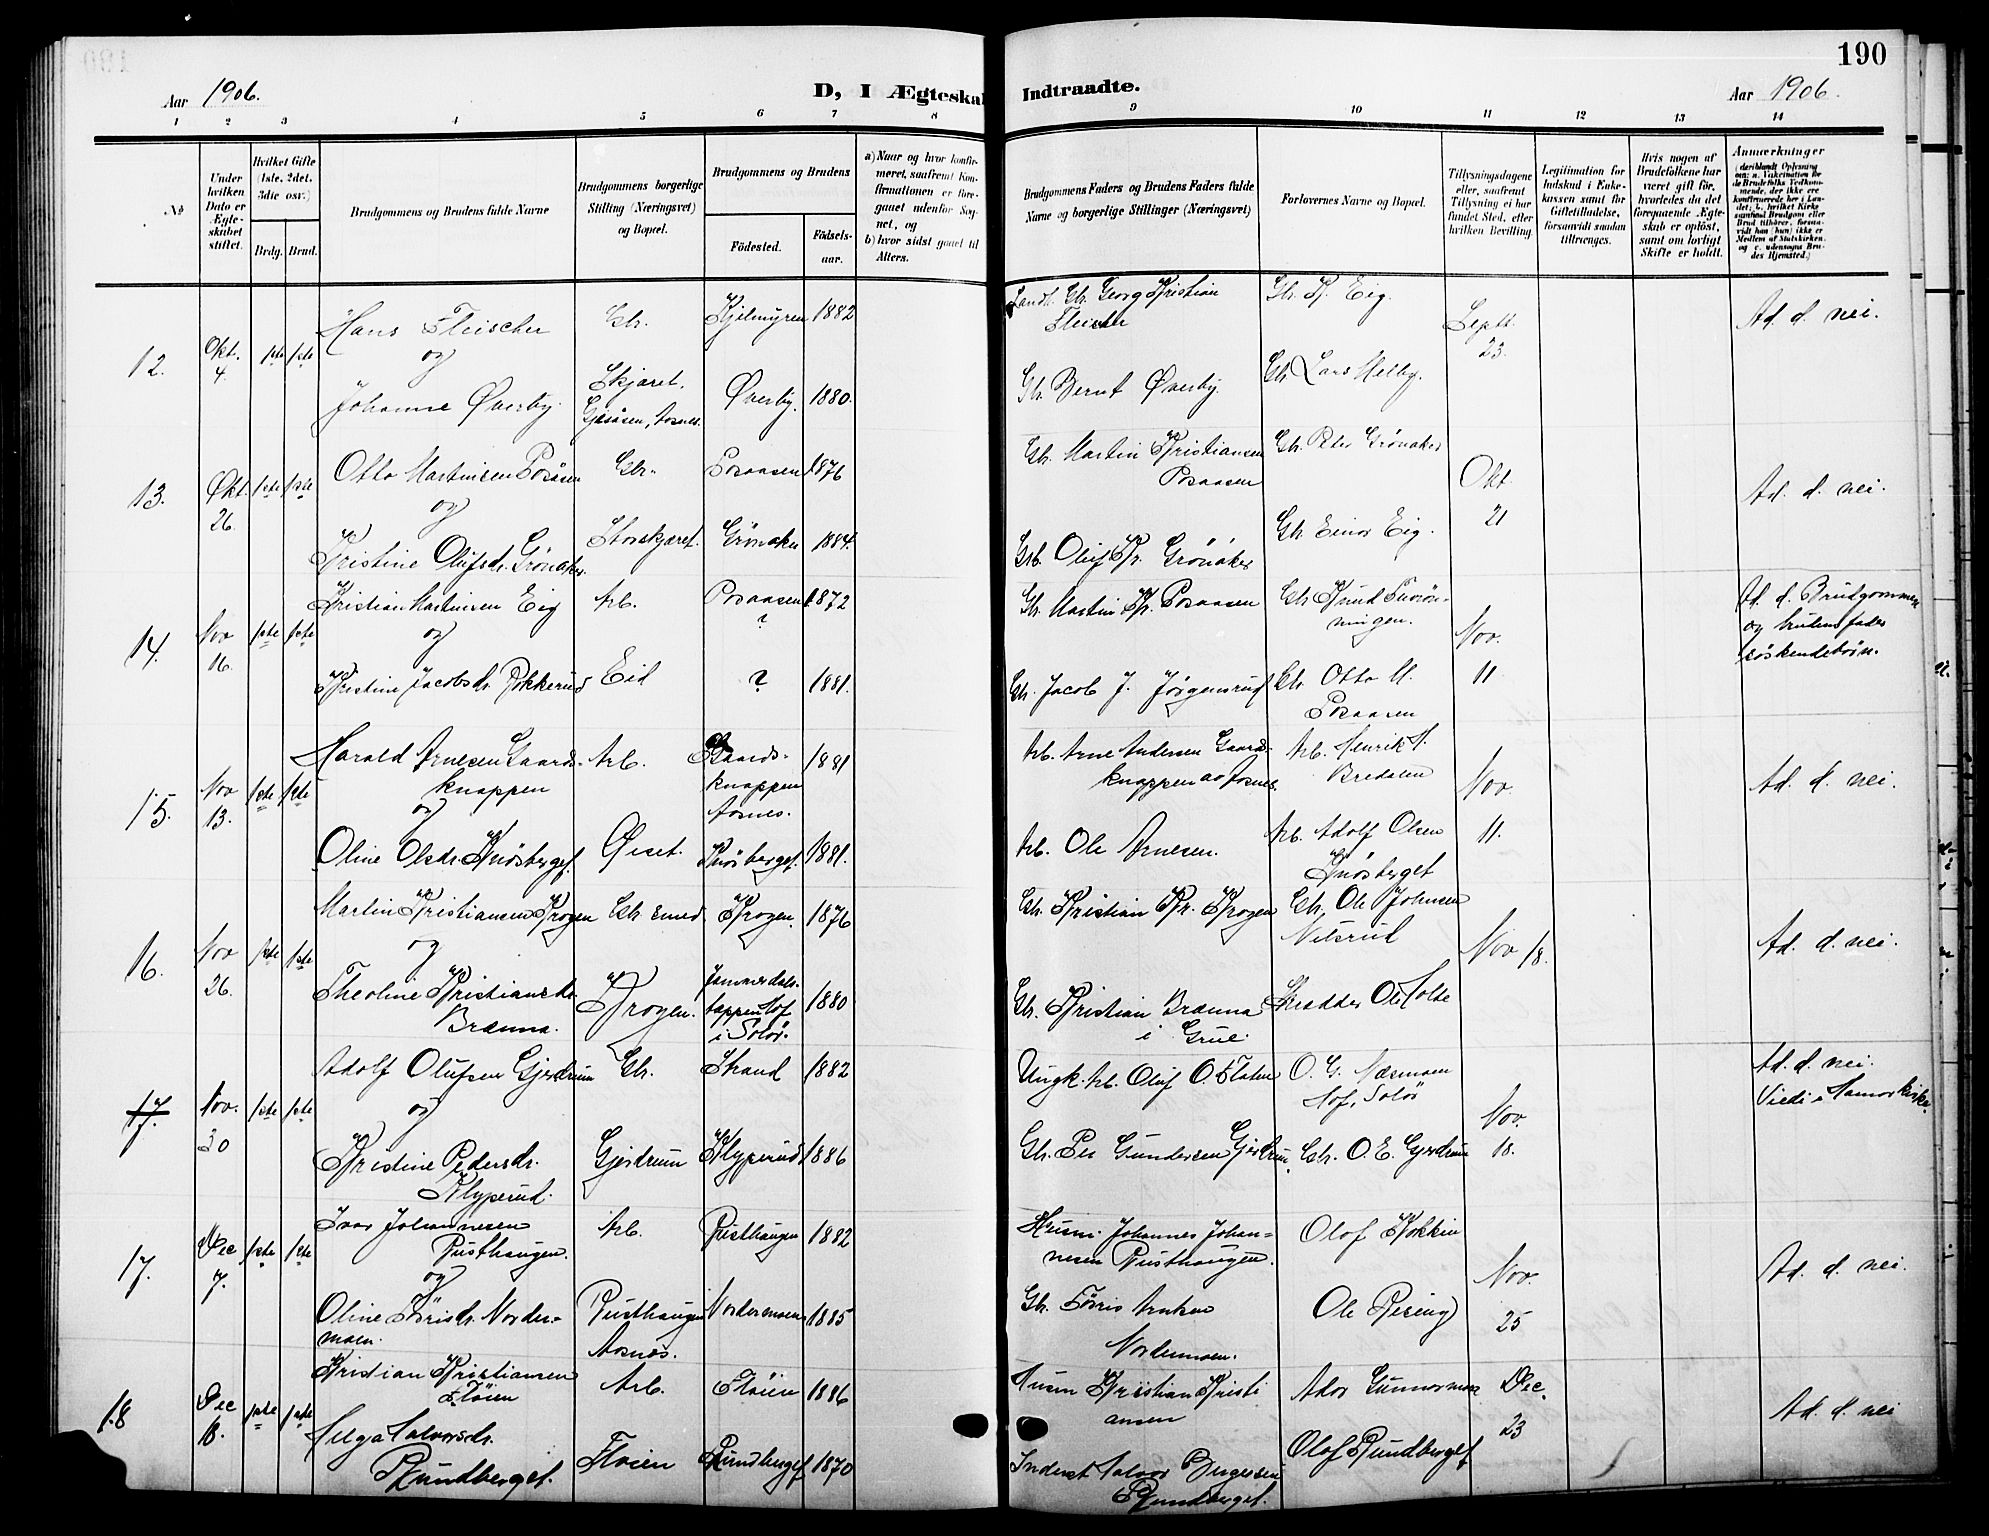 190
Aar 1906.
D, I Ægteskab
Indtraadte.
Aar 1906.
1 2 3 4 5 6 7 8 9 10 11 12 13 14
No
Under
hvilken
Dato er
Ægte-
skabet
stiftet.
Hvilket Gifte
(1ste, 2det,
3die osv.)
Brdg. Brud.
Brudgommens og Brudens fulde Navne
Brudgommens borgerlige
Stilling (Næringsvei)
og Bopæl.
Brudgommens og Brudens
Fødested.
Fødsels-
aar.
a) Naar og hvor konfir-
meret, saafremt Kon-
firmationen er fore-
gaaet udenfor Sog-
net, og
b) hvor sidst gaaet til
Alters.
Brudgommens Faders og Brudens Faders fulde
Navne og borgerlige Stillinger (Næringsvei)
Forlovernes Navne og Bopæl.
Tillysningsdagene
eller, saafremt
Tillysning ei har
fundet Sted, efter
hvilken Bevilling.
Legitimation for
Indskud i Enke-
kassen samt for
Giftetilladelse,
forsaavidt saadan
tiltrænges.
Hvis nogen af
Brudefolkene har
været gift før,
hvorledes da det
foregaaende Ægte-
skab er opløst,
samt om lovligt
Skifte er holdt.
Anmærkninger
12.
Okt.
4.
1ste 1ste
Hans Fleischer
og
Johanne Øverby.
Gbr.
Skjæret,
Gjæsåsen, Aasnes.
Kjelmyren 1882
Øverby. 1880.
Gbr. Georg Kristian
Fleischer
Gbr. Bernt Øverby.
Gbr. K. Eig.
Gbr. Lars Melby.
Septt.
23.
Ad. d. nei.
13.
Okt.
26.
1ste 1ste
Otto Martinsen Posåsen
og
Kristine Olufsdr. Grönaker.
Gbr.
Storskjæret.
Posaasen 1876
Grönaker 1884.
Gbr. Martin Kristiansen
Posaasen
Gbr. Oluf Kr. Grönaker
Gbr. Peter Grönaker
Gbr. Einar Eig.
Okt.
21
Ad. d. nei.
14.
Nov
16.
1ste 1ste
Kristian Martinsen Eig
og
Kristine Jacobsdr. Rokkerud
Arb.
Eid
Posaasen 1872
?
? 1881.
Gbr. Martin Kr. Posaasen
Gbr. Jacob J. Jörgensrud
Gbr. Knud
Gbr. Otto M.
Posaasen
Nov.
11
Ad. d. Brudgommen
og brudens fader
söskendebörn.
15.
Nov
13.
1ste 1ste
Harald Arnesen Gaards-
knappen
og
Oline Olsdr. Knösberget.
Arb.
Öiset.
Gaards-
knappen
Aasnes. 1881
Knösberget. 1881.
Arb. Arne Andersen Gaards-
knappen av Aasnes.
Arb. Ole Arnesen.
Arb. Henrik H.
Bredalen
Arb. Adolf Olsen
Knösberget
Nov.
11.
Ad. d. nei.
16.
Nov
26.
1ste 1ste
Martin Kristiansen Krogen
og
Theoline Kristiansdr.
Brænna.
Gbr. smed
Krogen.
Krogen. 1876
Jammerdals-
tappen Hof
i Solör. 1880
Gbr. Kristian Kr. Krogen
Gbr. Kristian Brænna
i Grue.
Gbr. Ole Johnsen
Nilsrud
Skredder Ole Holte
Nov 18.
Ad. d. nei.
17.
Nov.
30
1ste 1ste
Adolf Olufsen Gjerdrum
og
Kristine Pedersdr.
Klyperud.
Gbr.
Gjerdrum
Strand 1882
Klyperud 1886
Ungk. Arb. Oluf O. Flaten
Gbr. Per Gundersen Gjerdrum.
O. G. Næsmoen
Hof, Solör
Gbr. O. E. Gjerdrum
Nov.
18.
Ad. d. nei.
Viedi i Hamar kirke.
17.
Dec
7.
1ste 1ste
Ivar Johannesen
Rusthaugen.
og
Oline Törrisdr. Norder-
moen.
Arb.
Rusthaugen
Aasnes.
Rusthaugen 1882
Nordermoen 1885
Husm. Johannes Johan-
nesen Rusthaugen.
Gbr. Törris
Nordermoen.
Olof Kokkin
Ole Rising
Nov.
25
Ad. d. nei.
18
Dec
18.
1ste 1ste
Kristian Kristiansen
Flöien
Helga Halvorsdr.
Rundberget.
Arb.
Floien
Flöien 1886
Rundberget 1870
Husm Kristian Kristi
ansen
Inderst Halvor Birgersen
Rundberget.
Ador Gunnarmoen
Olof Rundberget
Dec.
23
Ad. d. nei